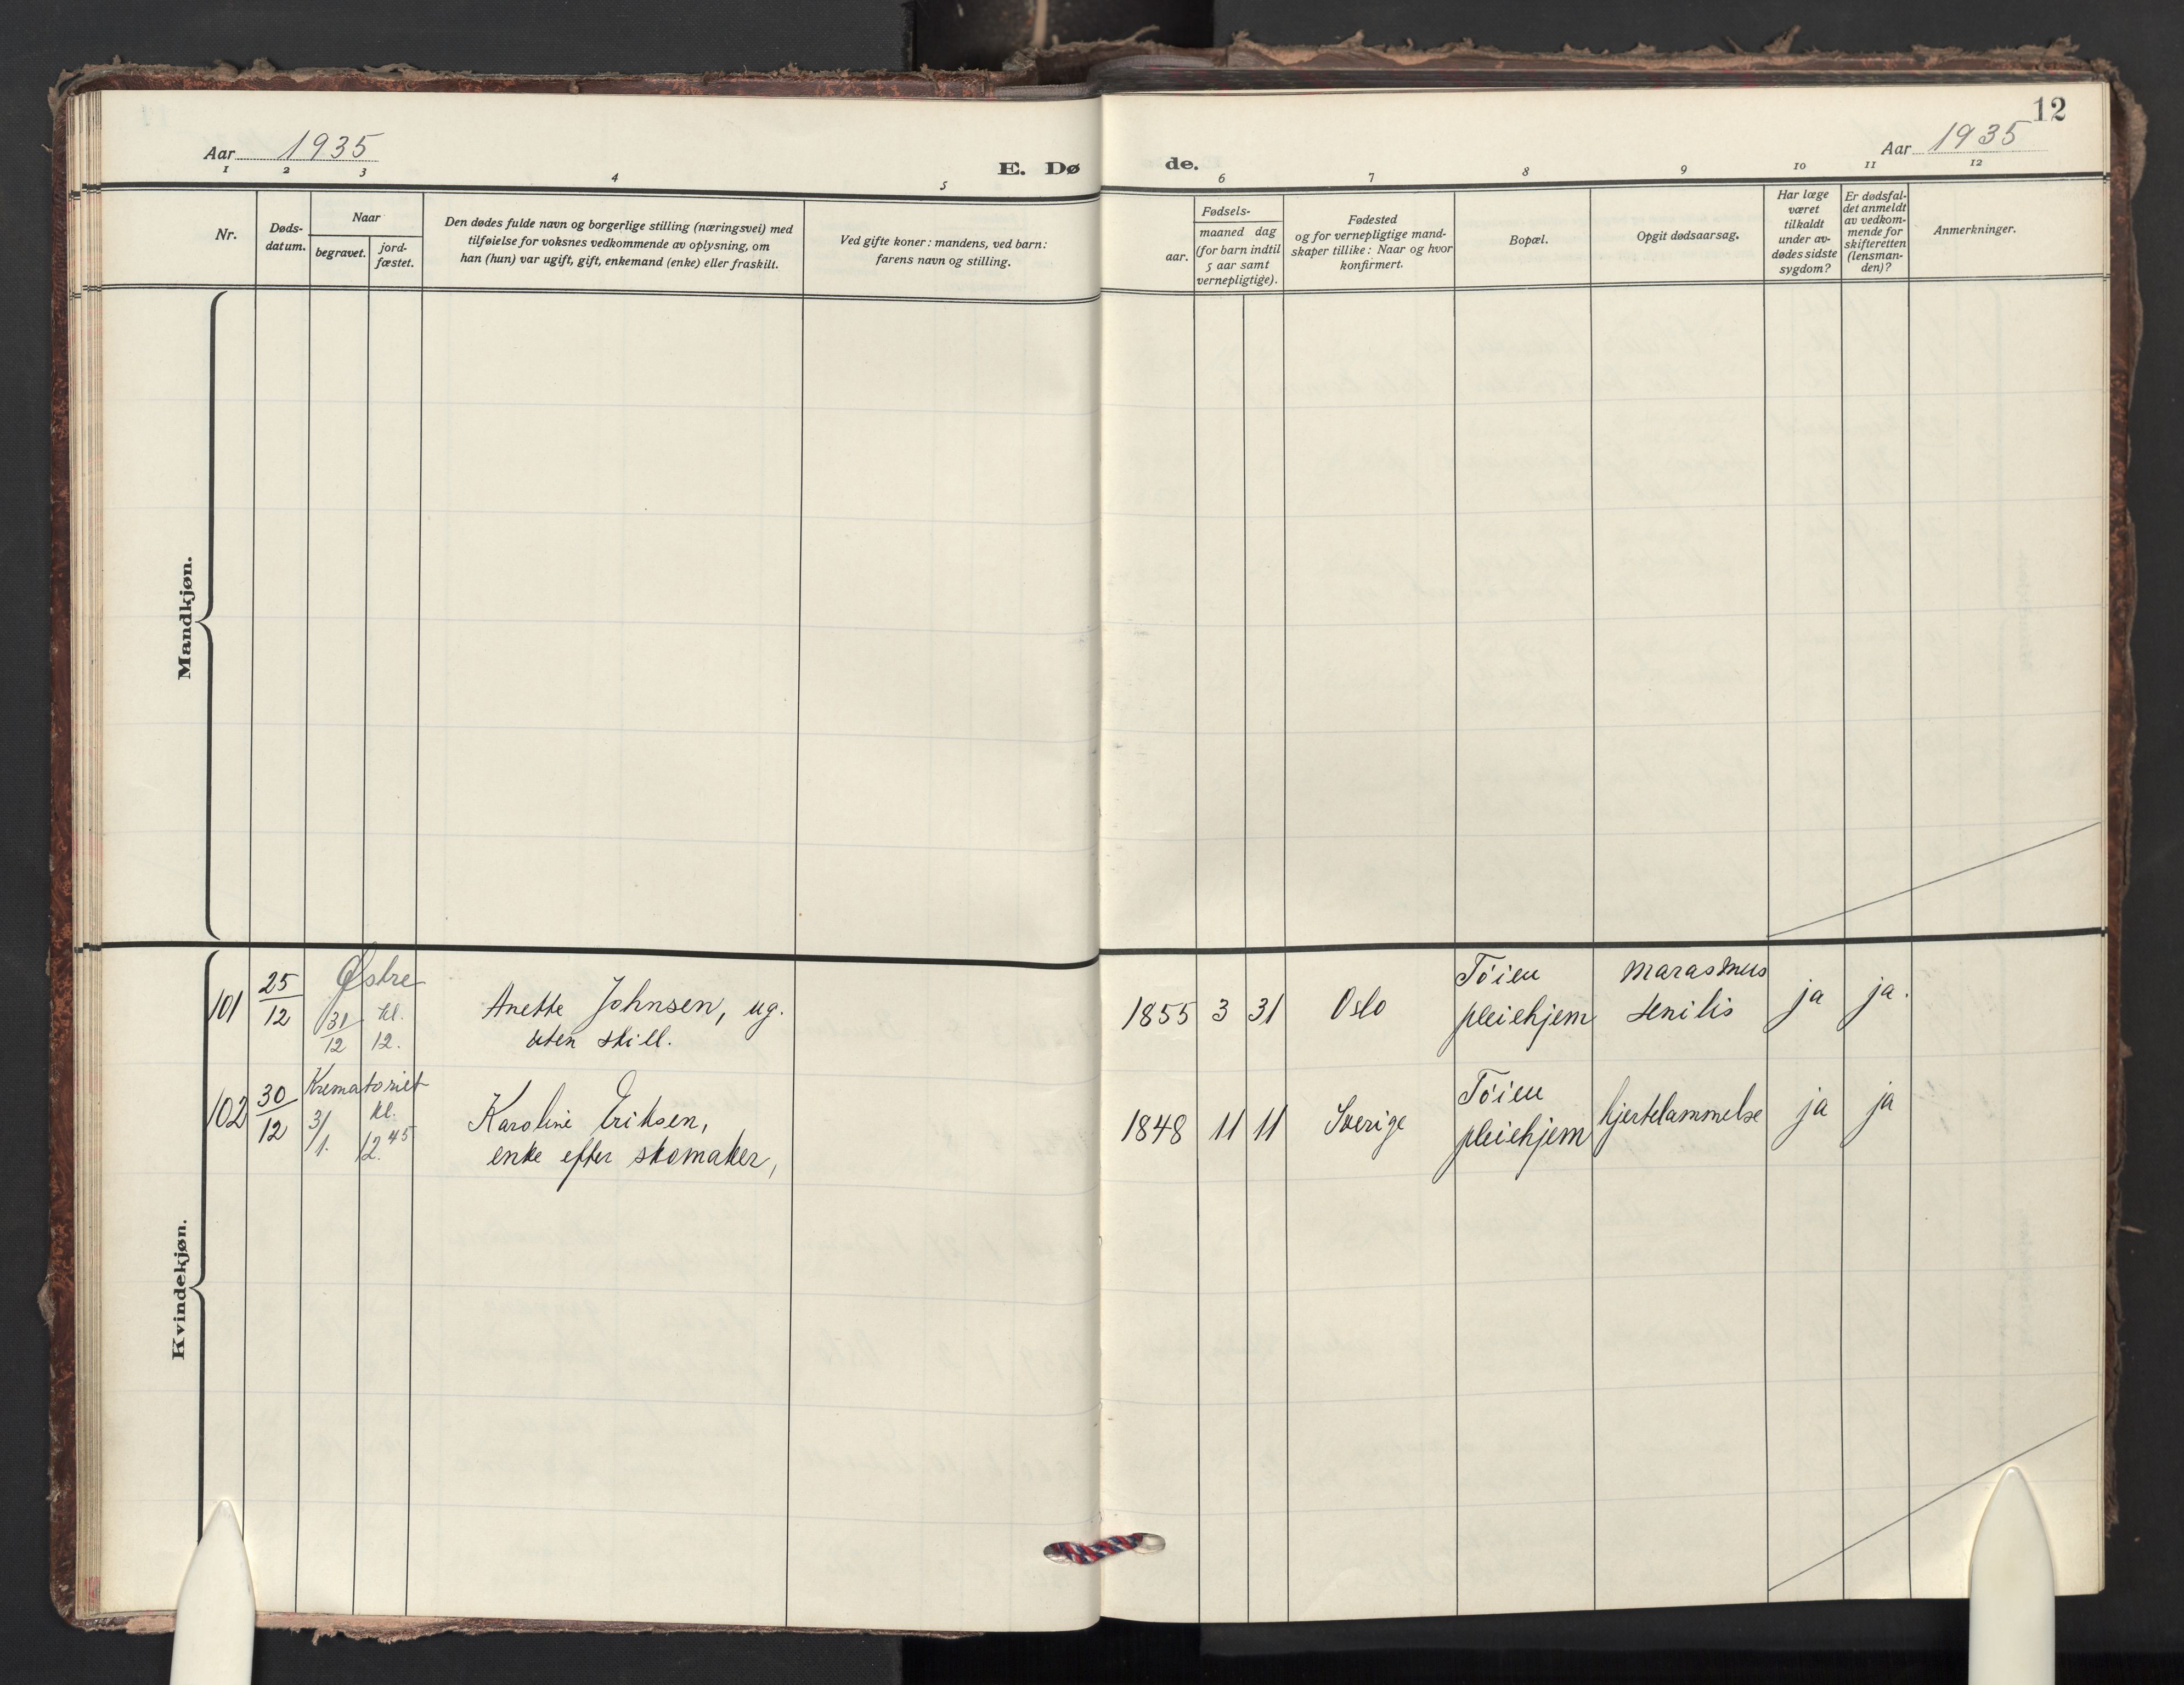 12
Aar 1935
E. Dø
de.
Aar 1935
1 2 3 4 5 6 7 8 9 10 11 12
Nr.
Døds-
datum.
Naar
begravet.
jord-
fæstet.
Den dødes fulde navn og borgerlige stilling (næringsvei) med
tilføielse for voksnes vedkommende av oplysning, om
han (hun) var ugift, gift, enkemand (enke) eller fraskilt.
Ved gifte koner: mandens, ved barn:
farens navn og stilling.
aar.
Fødsels-
maaned dag
(for barn indtil
5 aar samt
vernepligtige).
Fødested
og for vernepligtige mand-
skaper tillike: Naar og hvor
konfirmert.
Bopæl.
Opgit dødsaarsag.
Har læge
været
tilkaldt
under av-
dødes sidste
sygdom?
Er dødsfal-
det anmeldt
av vedkom-
mende for
skifteretten
(lensman-
den)?
Anmerkninger.
Mandkjøn.
Kvindekjøn.
101
25
12
Østre
31
12
kl.
12.
Anette Johnsen, ug.
uten still.
1855 3 31
Oslo
Tøien
pleiehjem
marasmus
senilis
ja
ja.
102
30
12
Krematoriet
3/1.
kl.
12.45
Karoline Eriksen,
enke efter skomaker,
1848 11 11
Sverige
Tøien
pleiehjem
hjertelammelse
ja
ja